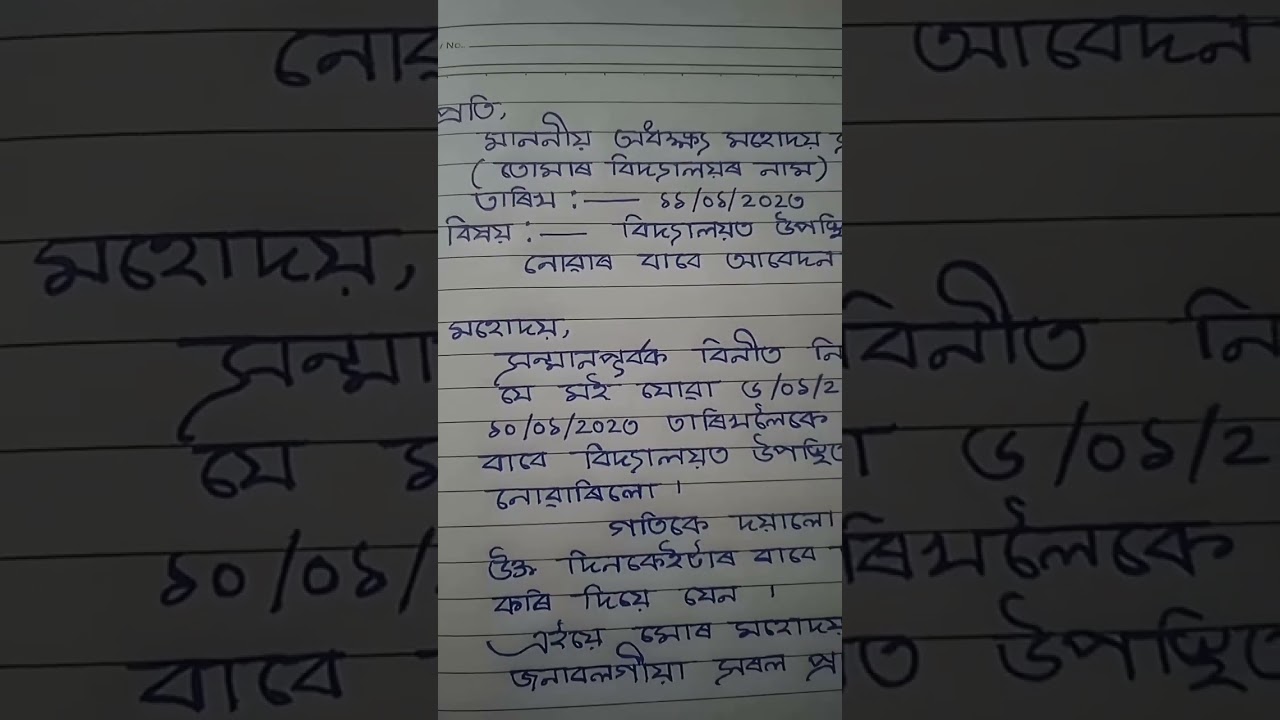 No.
প্ৰতি,
মাননীয় অধক্ষ্য মহোদয়
(তোমাৰ বিদ্যালয়ৰ নাম)
তাৰিখ :— ১১/০১/২০২৩
বিষয় :— বিদ্যালয়ত উপস্থি
নোৱাৰ বাবে আবেদন
মহোদয়,
সন্মানপূৰ্বক বিনীত নি
যে মই যোৱা ৬/০১/২
১০/০১/২০২৩ তাৰিখলৈকে
বাবে বিদ্যালয়ত উপস্থিত
নোৱাৰিলো ।
গতিকে দয়ালো
উক্ত দিনকেইটাৰ বাবে
কৰি দিয়ে যেন ।
এইয়ে মোৰ মহোদয়
জনাবলগীয়া সৰল প্ৰা